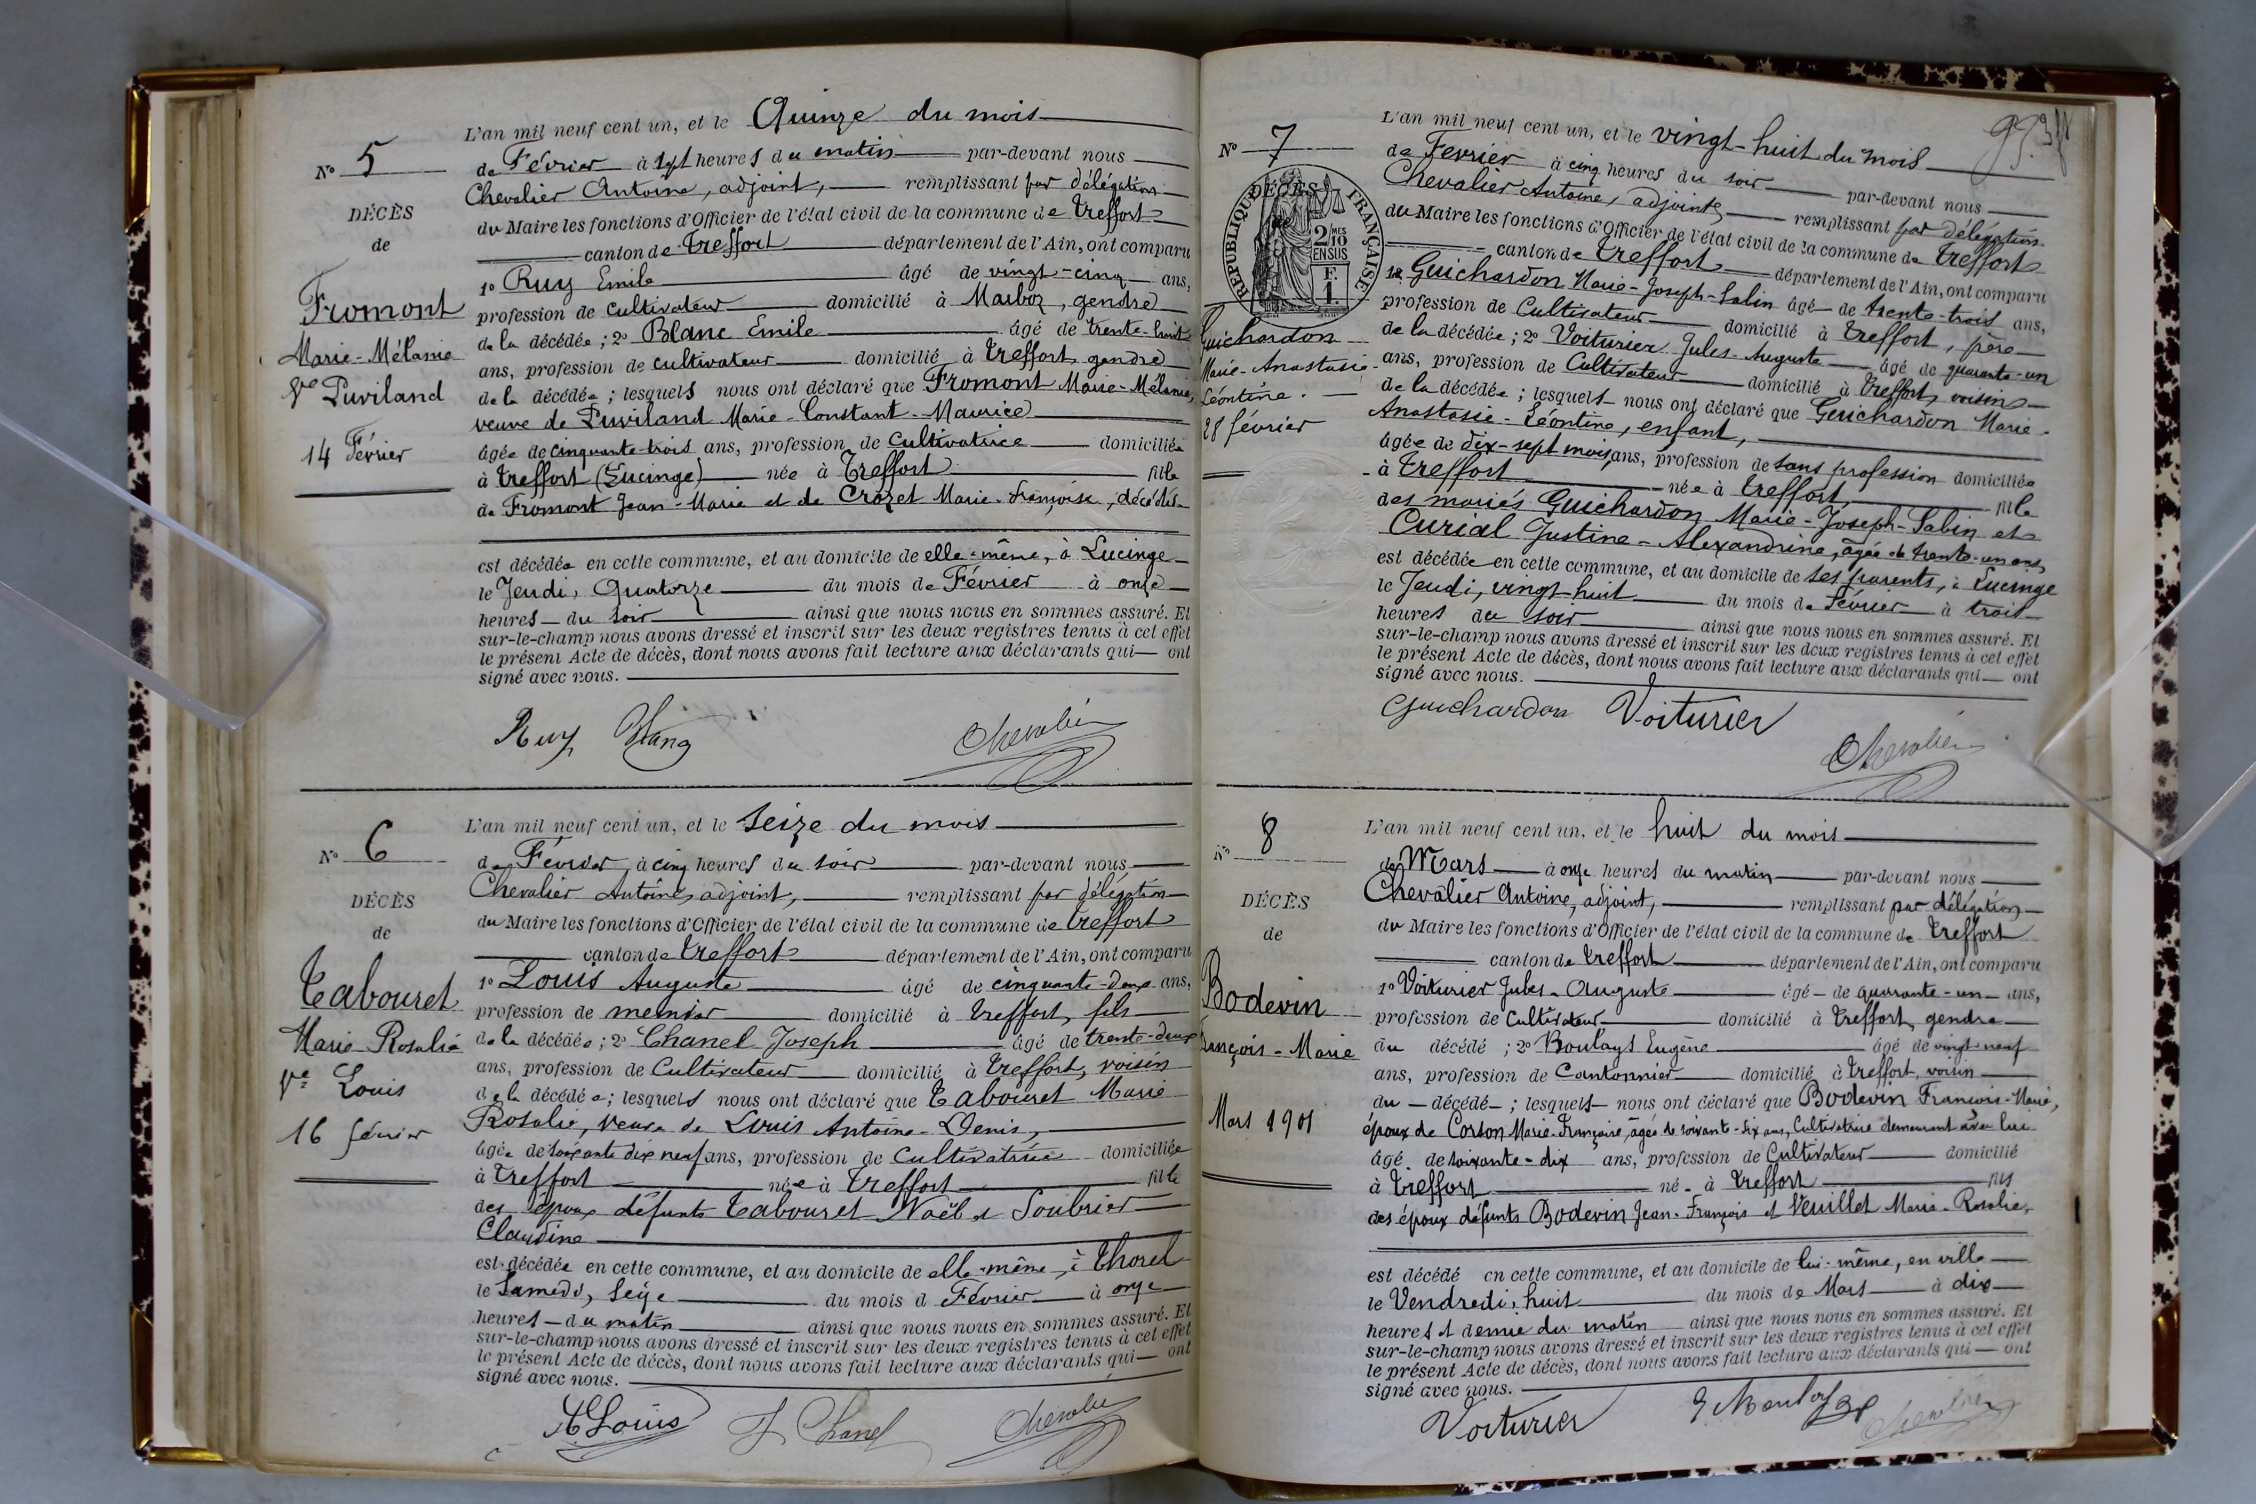 L'an mil neuf cent un, et le Quinze du mois
No 5
de Février à sept heures du matin par-devant nous
Chevalier Antoine, adjoint, remplissant par délégation
du Maire les fonctions d'Officier de l'état civil de la commune de Treffort
DÉCÈS
de
canton de Treffort département de l'Ain, ont comparu
1o Ruy Emile âgé de vingt-cinq ans,
Fromont
profession de cultivateur domicilié à Marboz, gendre
de la décédée ; 2o Blanc Emile âgé de trente-huit
Marie-Mélanie
ans, profession de cultivateur domicilié à Treffort gendre
Vve Puviland
de la décédée ; lesquels nous ont déclaré que Fromont Marie-Mélanie,
veuve de Puviland Marie-Constant-Maurice
14 Février
âgée de cinquante-trois ans, profession de Cultivatrice domiciliée
à Treffort (Lucinge) née à Treffort fille
de Fromont Jean-Marie et de Crozet Marie-Françoise, décédés
est décédée en cette commune, et au domicile de elle-même, à Lucinge
le Jeudi, Quatorze du mois de Février à onze
heures du soir ainsi que nous nous en sommes assuré. Et
sur-le-champ nous avons dressé et inscrit sur les deux registres tenus à cet effet
le présent Acte de décès, dont nous avons fait lecture aux déclarants qui ont
signé avec nous.
Ruy Blanc Chevalier
L'an mil neuf cent un, et le Seize du mois
No 6
de Février à cinq heures du soir par-devant nous
Chevalier Antoine, adjoint, remplissant par délégation
DÉCÈS
du Maire les fonctions d'Officier de l'état civil de la commune de Treffort
de
canton de Treffort département de l'Ain, ont comparu
Tabouret
1o Louis Auguste âgé de cinquante-deux ans,
profession de menuier domicilié à Treffort, fils
Marie-Rosalie
de la décédée ; 2o Chanel Joseph âgé de trente-deux
ans, profession de Cultivateur domicilié à Treffort, voisin
Vve Louis
de la décédée ; lesquels nous ont déclaré que Tabouret Marie
16 février
Rosalie, veuve de Louis Antoine-Denis,
âgée de soixante dix neuf ans, profession de Cultivatrice domiciliée
à Treffort née à Treffort fille
des époux défunts Tabouret Noël et Soubrier
Claudine
est décédée en cette commune, et au domicile de elle-même, à Thorel
le Samedi, Seize du mois d Février à onze
heures du matin ainsi que nous nous en sommes assuré. Et
sur-le-champ nous avons dressé et inscrit sur les deux registres tenus à cet effet
le présent Acte de décès, dont nous avons fait lecture aux déclarants qui ont
signé avec nous.
A Louis J Chanel Chevalier
L'an mil neuf cent un, et le vingt-huit du mois
No 7
de Fevrier à cinq heures du soir par-devant nous
Chevalier Antoine, adjoint, remplissant par délégation
du Maire les fonctions d'Officier de l'état civil de la commune de Treffort
RÉPUBLIQUE FRANÇAISE
DÉCÈS
2 MES 10 EN SUS
F. 1.
canton de Treffort département de l'Ain, ont comparu
1o Guichardon Marie-Joseph-Sabin âgé de trente-trois ans,
profession de Cultivateur domicilié à Treffort, père
Guichardon
de la décédée ; 2o Voiturier Jules-Auguste âgé de quarante-un
Marie-Anastasie-
ans, profession de Cultivateur domicilié à Treffort, voisin
Léontine.
de la décédée ; lesquels nous ont déclaré que Guichardon Marie-
28 février
Anastasie-Léontine, enfant,
âgée de dix-sept mois, ans, profession de sans profession domiciliée
à Treffort née à Treffort fille
des mariés Guichardon Marie-Joseph-Sabin et
Curial Justine-Alexandrine, âgée de trente-un ans,
est décédée en cette commune, et au domicile de ses parents, à Lucinge
le Jeudi, vingt-huit du mois de Février à trois
heures du soir ainsi que nous nous en sommes assuré. Et
sur-le-champ nous avons dressé et inscrit sur les deux registres tenus à cet effet
le présent Acte de décès, dont nous avons fait lecture aux déclarants qui ont
signé avec nous.
Guichardon Voiturier
Chevalier
L'an mil neuf cent un, et le huit du mois
No 8
de Mars à onze heures du matin par-devant nous
Chevalier Antoine, adjoint, remplissant par délégation
DÉCÈS
du Maire les fonctions d'Officier de l'état civil de la commune de Treffort
de
canton de Treffort département de l'Ain, ont comparu
Bodevin
1o Voiturier Jules-Auguste âgé de quarante-un ans,
profession de Cultivateur domicilié à Treffort, gendre
François-Marie
du décédé ; 2o Boulays Eugène âgé de vingt-neuf
ans, profession de Cantonnier domicilié à Treffort, voisin
du décédé ; lesquels nous ont déclaré que Bodevin François-Marie,
Mars 1901
époux de Corson Marie-Françoise, âgée de soixante-six ans, Cultivatrice demeurant avec lui
âgé de soixante-dix ans, profession de Cultivateur domicilié
à Treffort né à Treffort fils
des époux défunts Bodevin Jean-François et Veuillet Marie-Rosalie,
est décédé en cette commune, et au domicile de lui-même, en ville
le Vendredi, huit du mois de Mars à dix
heures et demie du matin ainsi que nous nous en sommes assuré. Et
sur-le-champ nous avons dressé et inscrit sur les deux registres tenus à cet effet
le présent Acte de décès, dont nous avons fait lecture aux déclarants qui ont
signé avec nous.
Voiturier Chevalier